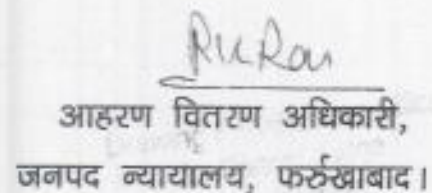 आहरण वितरण अधिकारी,
जनपद न्यायालय, फर्रुखाबाद।